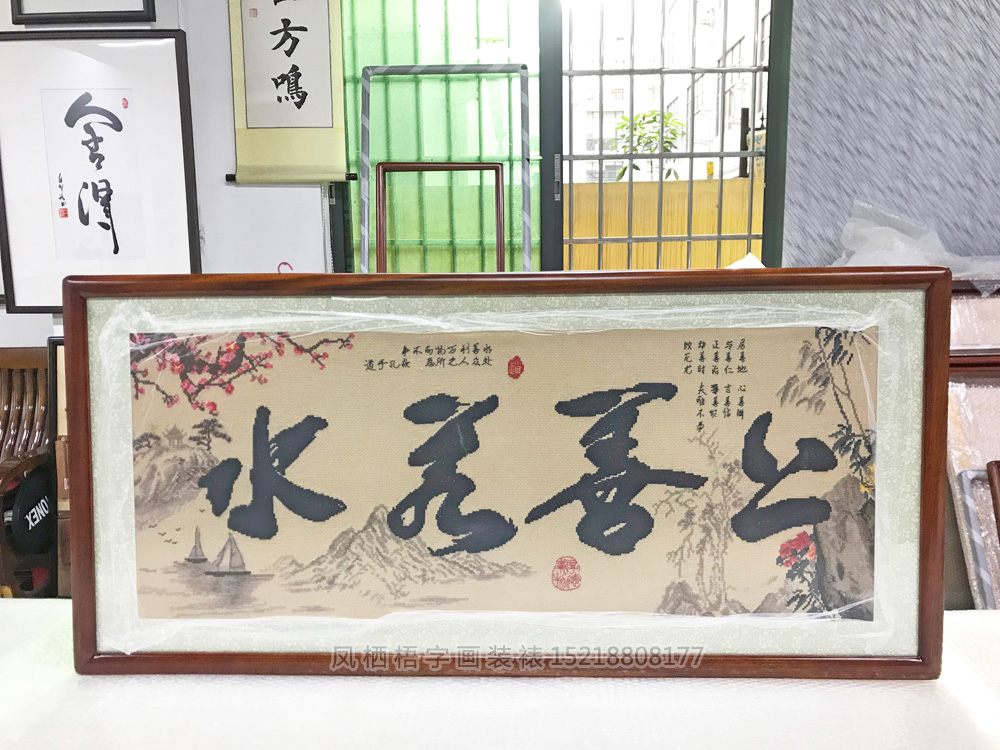 舍得
方鸣
上善若水
水善利万物而不争
处众人之所恶 故几于道
居善地 心善渊
与善仁 言善信
正善治 事善能
动善时 夫唯不争
故无尤
ONEX
凤栖梧字画装裱 15218808177